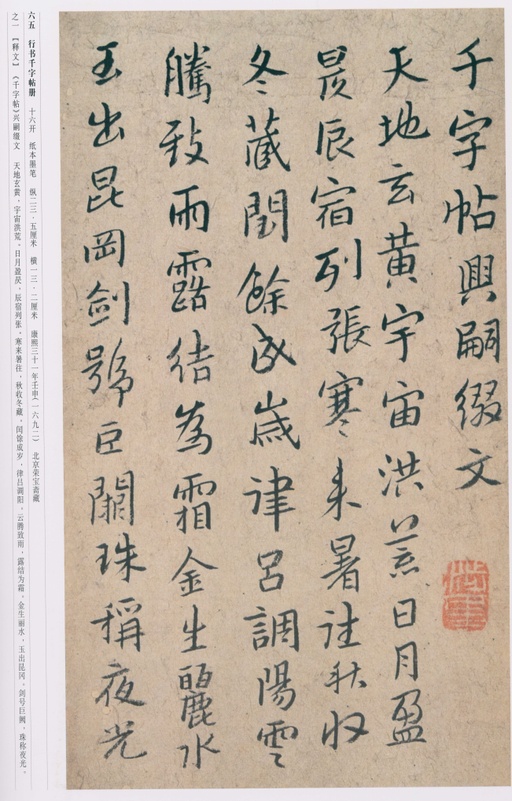 千字帖興嗣綴文
天地玄黃宇宙洪荒日月盈
昃辰宿列張寒来暑往秋收
冬藏閏餘成歲律呂調陽雲
騰致雨露结為霜金生麗水
玉出昆岡劍號巨闕珠稱夜光
六五 行书千字帖册 十六开 纸本墨笔 纵二三·五厘米 横一三·二厘米 康熙三十一年壬申(一六九二) 北京荣宝斋藏
之一【释文】《千字帖》兴嗣缀文 天地玄黄，宇宙洪荒。日月盈昃，辰宿列张。寒来暑往，秋收冬藏，闰馀成岁，律吕调阳。云腾致雨，露结为霜。金生丽水，玉出昆冈。剑号巨阙，珠称夜光。